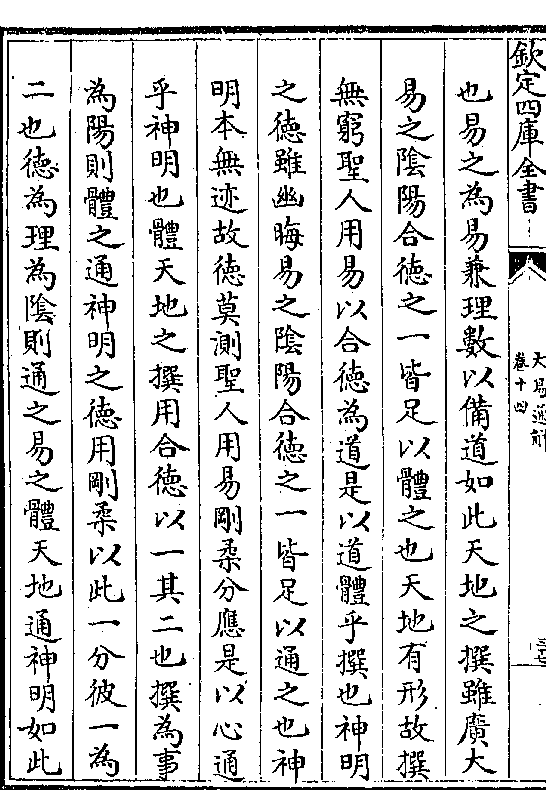 欽定四庫全書
大易通解
卷十四
也易之為易兼理數以備道如此天地之撰雖廣大
易之陰陽合徳之一皆足以體之也天地有形故撰
無窮聖人用易以合徳為道是以道體乎撰也神明
之徳雖幽晦易之陰陽合徳之一皆足以通之也神
明本無迹故徳莫測聖人用易剛柔分應是以心通
乎神明也體天地之撰用合徳以一其二也撰為事
為陽則體之通神明之徳用剛柔以此一分彼一為
二也徳為理為陰則通之易之體天地通神明如此